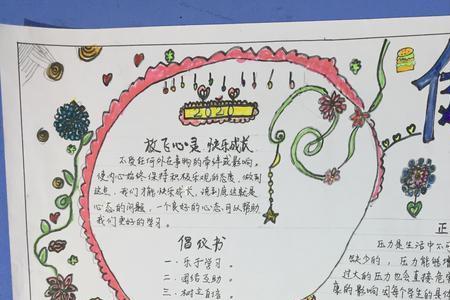 2020
放飞心灵 快乐成长
不受任何外在事物的牵绊或影响。
使内心始终保持积极乐观的态度,做到
这点,我们才能快乐成长,说到底这就是
心态的问题,一个良好的心态可以帮助
我们更好的学习。
倡仪书
一、乐于学习。
二、团结互助。
三、树立自信
正
压力是生活中不可
缺少的,压力能够增
过大的压力也会直接危害
康的影响因每个学生的具体